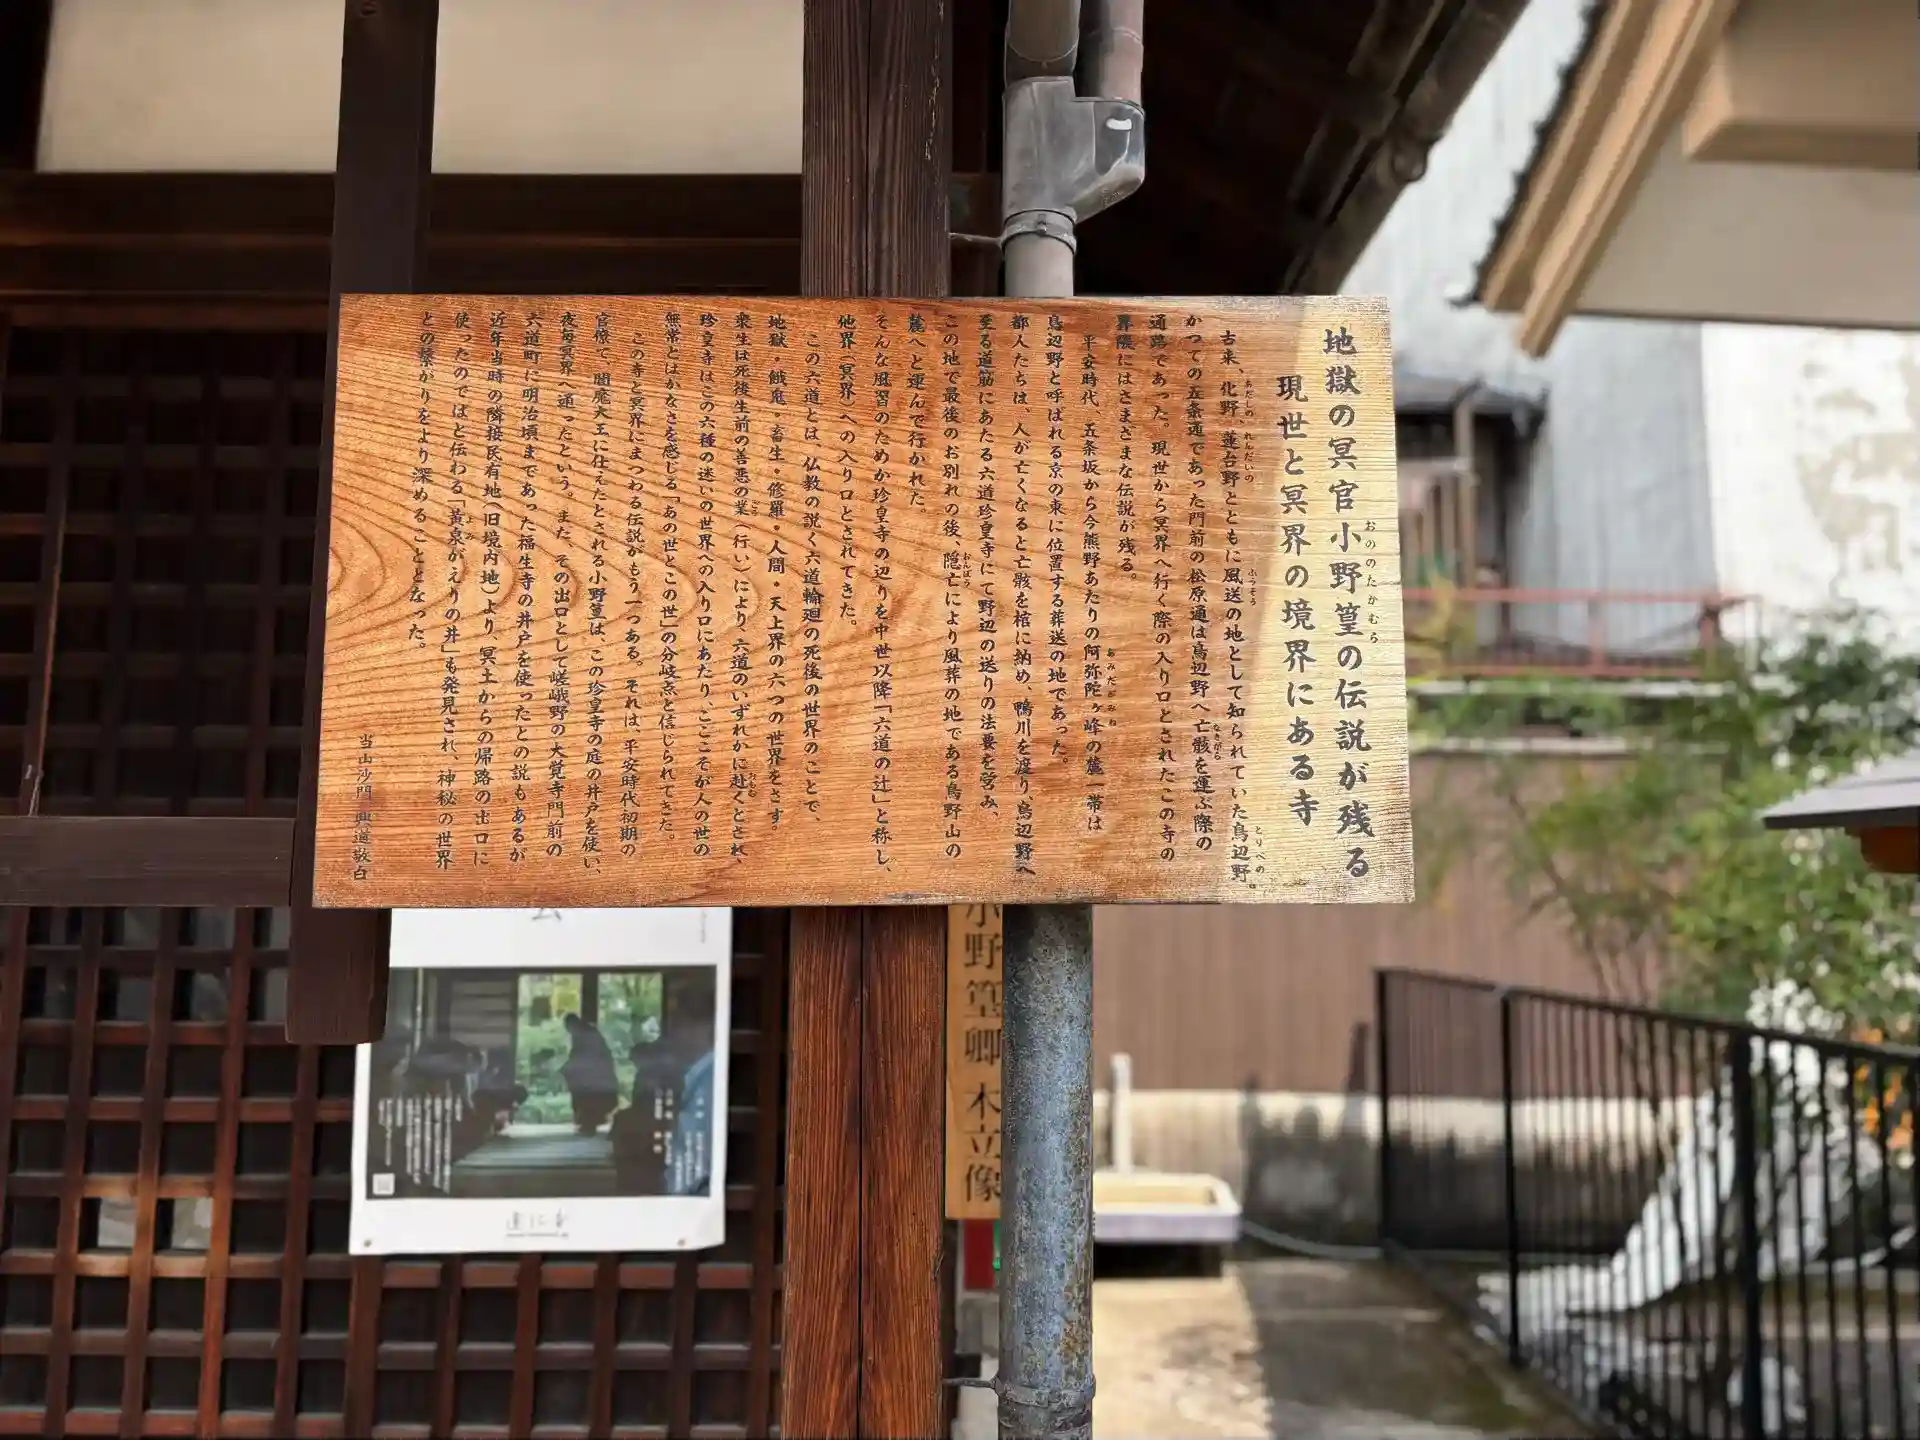 地獄の冥官小野篁の伝説が残る
おののたかむら
現世と冥界の境界にある寺
古来、化野、蓮台野とともに風送の地として知られていた鳥辺野。
あだしの れんだいの ふうそう とりべの
かつての五条通であった門前の松原通は鳥辺野へ亡骸を運ぶ際の
なきがら
通路であった。現世から冥界へ行く際の入り口とされたこの寺の
界隈にはさまざまな伝説が残る。
平安時代、五条坂から今熊野あたりの阿弥陀ヶ峰の麓一帯は
あみだがみね
鳥辺野と呼ばれる京の東に位置する葬送の地であった。
都人たちは、人が亡くなると亡骸を棺に納め、鴨川を渡り、鳥辺野へ
至る道筋にあたる六道珍皇寺にて野辺の送りの法要を営み、
この地で最後のお別れの後、隠亡により風葬の地である鳥野山の
おんぼう
麓へと運んで行かれた。
そんな風習のためか珍皇寺の辺りを中世以降「六道の辻」と称し、
他界（冥界）への入り口とされてきた。
この六道とは、仏教の説く六道輪廻の死後の世界のことで、
地獄・餓鬼・畜生・修羅・人間・天上界の六つの世界をさす。
衆生は死後生前の善悪の業（行い）により、六道のいずれかに赴くとされ、
ごう おもむ
珍皇寺は、この六種の迷いの世界への入り口にあたり、ここそが人の世の
無常とはかなさを感じる「あの世とこの世」の分岐点と信じられてきた。
この寺と冥界にまつわる伝説がもう一つある。それは、平安時代初期の
官僚で、閻魔大王に仕えたとされる小野篁は、この珍皇寺の庭の井戸を使い、
夜毎冥界へ通ったという。また、その出口として嵯峨野の大覚寺門前の
六道町に明治頃まであった福生寺の井戸を使ったとの説もあるが
近年当時の隣接民有地（旧境内地）より、冥土からの帰路の出口に
使ったのではと伝わる「黄泉がえりの井」も発見され、神秘の世界
よみ
との繋がりをより深めることとなった。
当山沙門 興道敬白
小野篁卿木立像